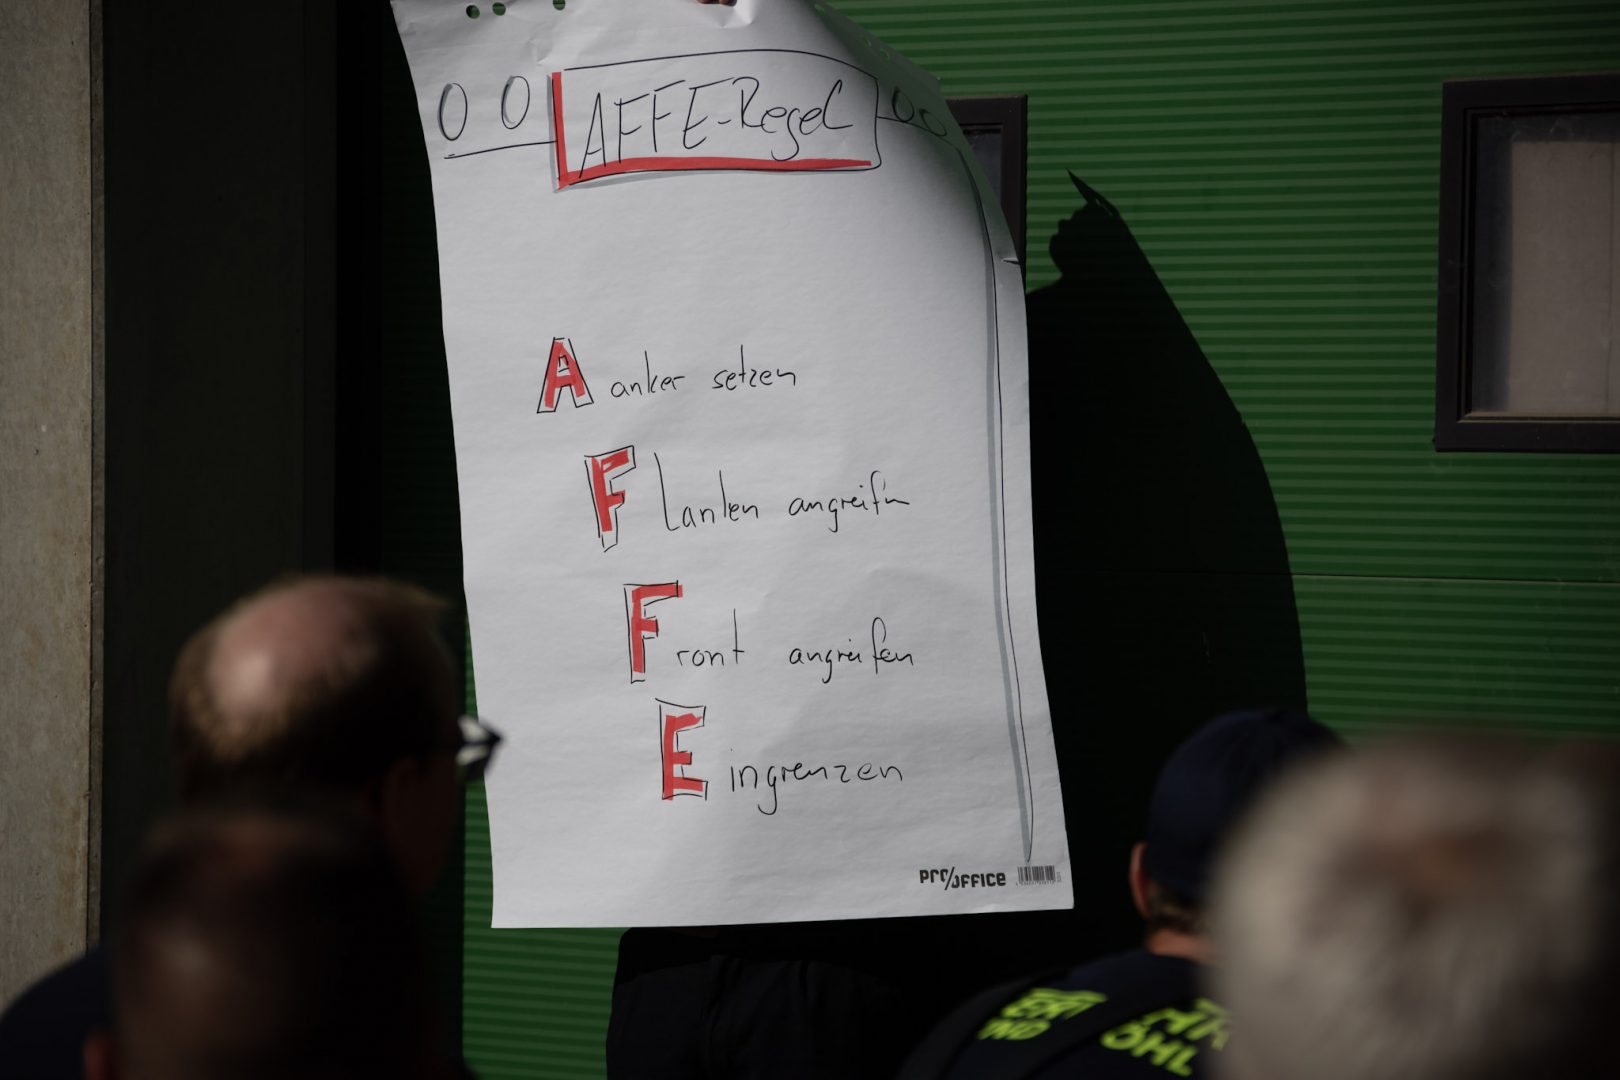 AFFE-Regel
A anker setzen
F Lanken angreifen
F ront angreifen
E ingrenzen
PRO/OFFICE